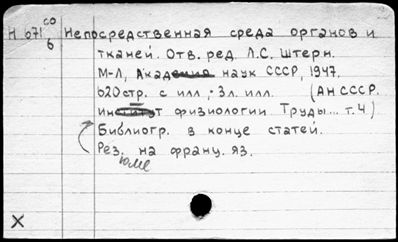 со
Н 671 Непосредственная среда органов и
б
тканей. Отв. ред. Л.С. Штерн.
М-Л, Академия наук СССР, 1947.
620 стр. с илл; 3 л. илл. (АН СССР.
Институт физиологии Труды... т. 4)
Библиогр. в конце статей.
Рез. на франц. яз.
X